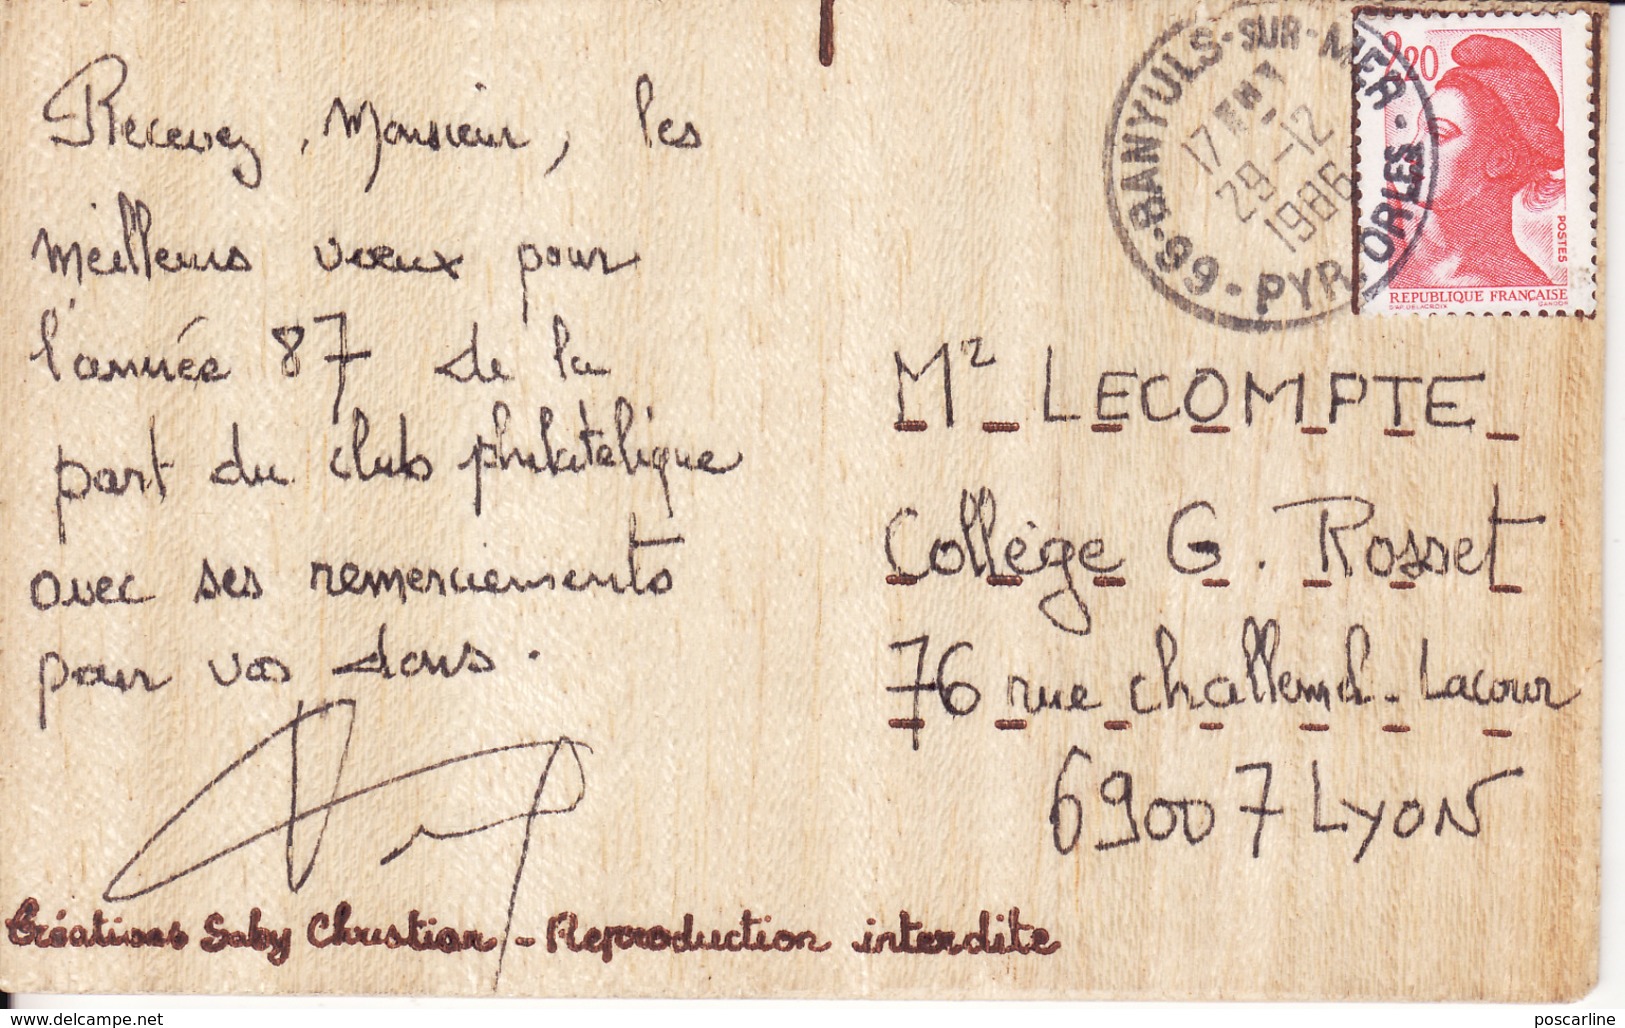 Recevez, Monsieur, les
meilleurs vœux pour
l'année 87 de la
part du club philatélique
avec ses remerciements
pour vos dons.
Créations Saby Christian - Reproduction interdite
BANYULS-SUR-MER
17H
29-12
1986
66 - PYR.-ORLES
2,20
POSTES
REPUBLIQUE FRANÇAISE
D'AP. DELACROIX GANDON
Mr LECOMPTE
Collège G. Rosset
76 rue challemel-Lacour
69007 LYON
delcampe.net
poscarline